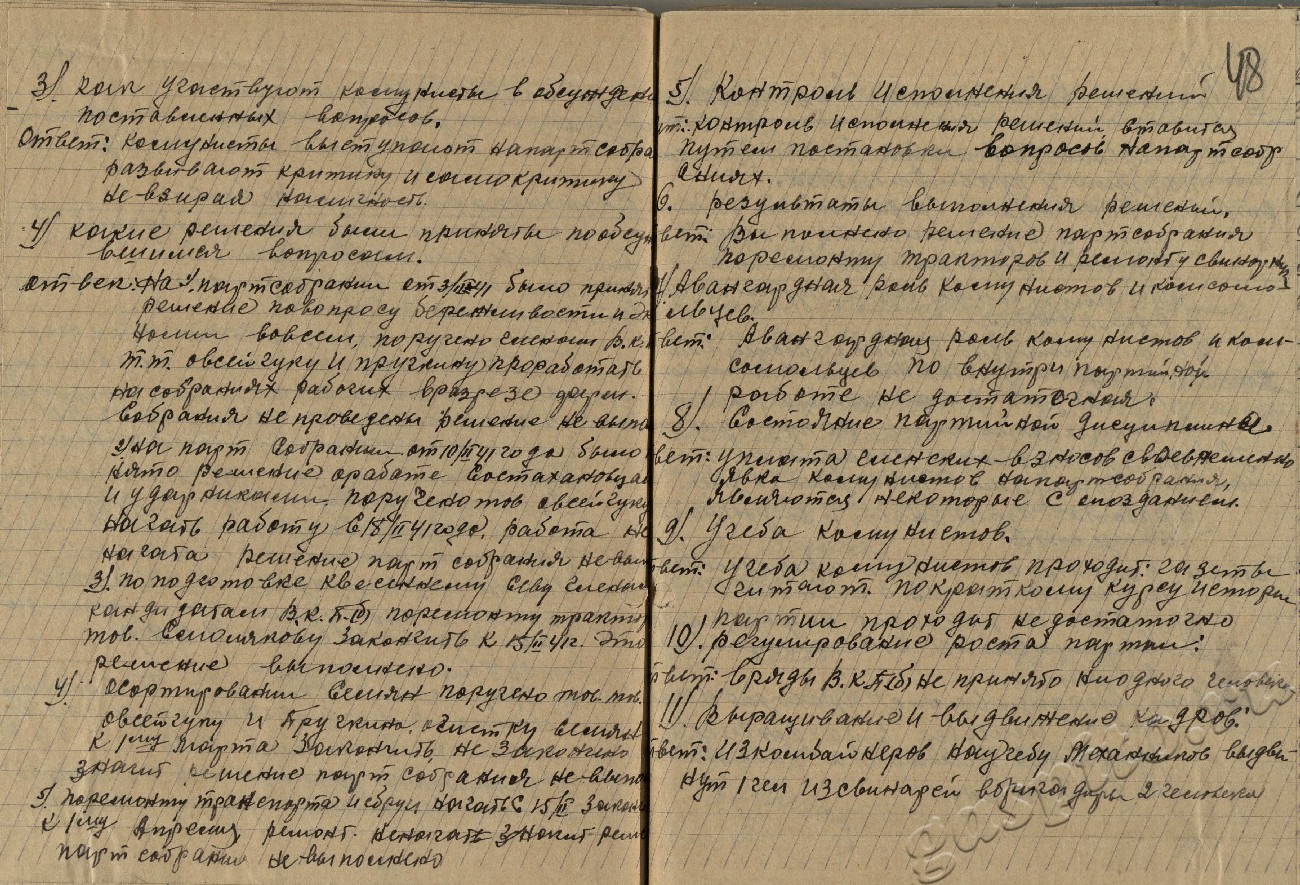 3). как участвуют комунисты в обсужден
поставленных вопросов.
Ответ: Комунисты выступают на партсобра
развивают критику и самокритику
не-взирая на личность.
4) какие решения были приняты по обсуж
вшимся вопросам.
ответ: На 1. партсобрании от 3/III 41 было принят
решение по вопросу бережливости и эк
номии во всем, поручено членам В.К.
т.т. овсейчуку и пручкину проработать
на собраниях рабочих в разрезе ферм.
Собрания не проведены решение не-выпо
2) на парт Собрании от 10/II 41 года было
нято решение о работе Состахановцам
и ударниками. Поручено тов овсейчуку
начать работу с 18/II 41 года. работа не
начата решение парт собрания не-вып
3). по подготовке квесеннему севу членам
кандидатам В.К.П.(б) по ремонту тракто
тов. Смолякову Закончить к 15/II 41 г. Это
решение выполнено.
4). осортировании Семян поручено тов. тов.
овсейчуку и Пручкину. очистку семян
к 1му Марта Закончить, не Закончено
значит решение парт собрания не-выпо
5. по ремонту транспорта и сбруи начать с 15/II Законч
к 1му Апреля, ремонт. неначат Значит реш
парт собрания не-выполнено
48
5). Контроль Исполнения решений
ут: контроль исполнения решений ставится
путем постановки вопросов на партсобр
аниях.
6. результаты выполнения решений.
вет: Выполнено решение партсобрания
по ремонту тракторов и ремонту свинарни
7. Авангардная роль комунистов и комсомо
льцев.
вет: Авангардная роль комунистов и ком-
сомольцев по внутри партийной
работе не достаточная.
8). Состояние партийной дисциплины
вет: уплата членских взносов своевременно
явка комунистов на партсобрания,
являются некоторые с опозданием.
9). Учеба комунистов.
вет: Учеба комунистов проходит. газеты
читают. По краткому курсу истории
партии проходят недостаточно
10). регулирование роста партии:
вет: в ряды В.К.П.(б) не принято ни одного человека
11). Выращивание и-выдвижение кадров:
вет: из комбайнеров на учебу Механиков выдви
нут 1 чел из свинарей в бригадиры 2 человека